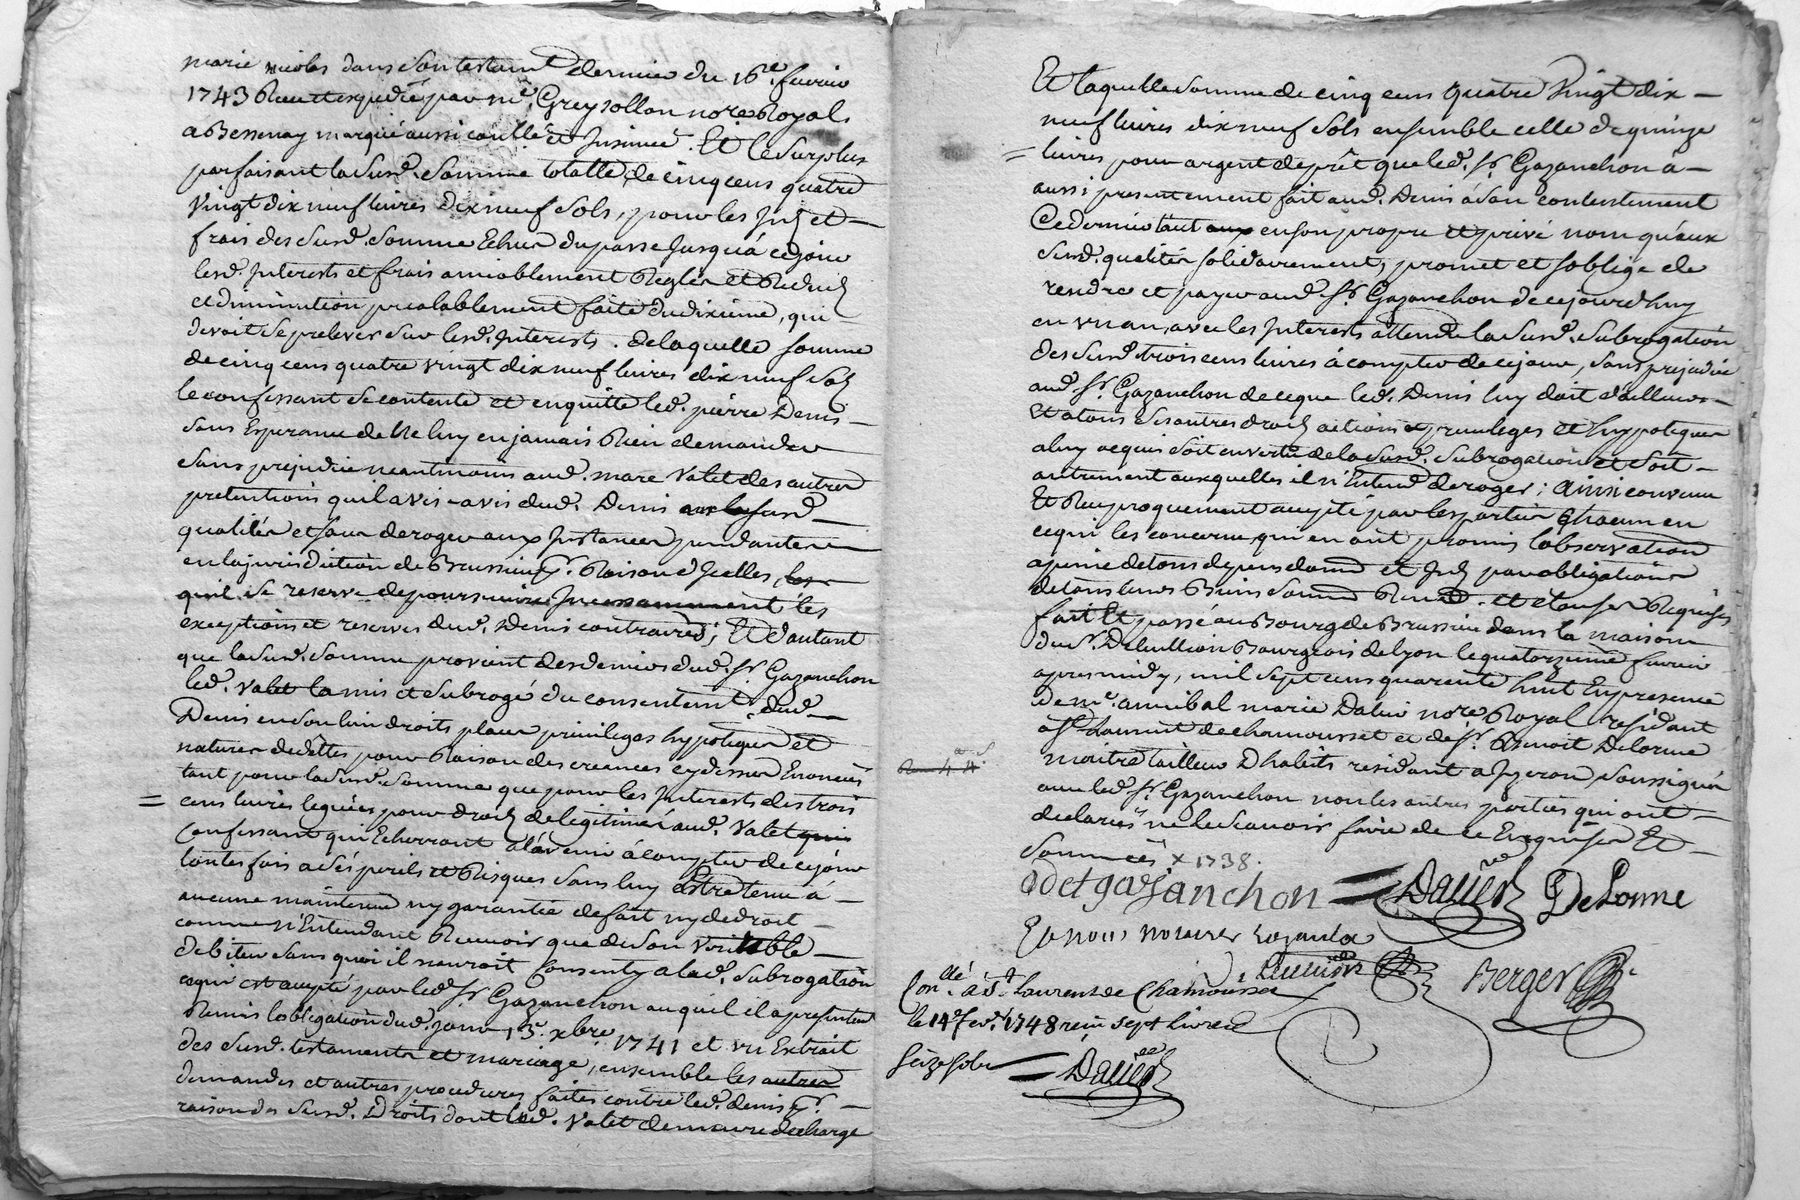 marie nicolas dans son testamt dernier du 16e. fevrier
1743 Receu et expedié par me. Greysollon nore Royal
a Bessenay marqué aussi conllé et Insinué. Et le surplus
parfaisant la susd. somme totalle de cinq cens quatre
vingt dix neuf livres dix neuf sols, pour les Int et
frais des susd. somme Echus du passé jusqu'à ce jour
lesd. Interests et frais amiablement Reglés et Reduits
et diminution prealablement faite du dixieme, qui
devoit se prelever sur lesd. Interests. de laquelle somme
de cinq cens quatre vingt dix neuf livres dix neuf sols
le confessant se contente et en quitte led. pierre Denis
sans Esperance de ne luy en jamais Rien demander
sans prejudice neantmoins aud. marc Valet des autres
pretentions qu'il a vis-a-vis dud. Denis susd.
qualités et sans deroger aux Instances pendantes
en la jurisdiction de Brussieu pr. Raison d'Icelles,
qu'il se reserve de poursuivre Incessamment les
exceptions et reserves dud. Denis contraires; Et d'autant
que la susd. somme provient des deniers dud. sr. Gazanchon
led. Valet la mis et subrogé du consentemt. dud.
Denis en son lieu droits place privileges hypoteques et
natures de dettes pour Raison des creances cy dessus Enoncées
tant pour la susd. somme que pour les Interests des trois
cens livres leguées pour droits de legitime aud. Valet
Confessant qui Echerront à l'avenir à compter de ce jour
toutes fois a ses perils et Risques sans luy Estre tenu à
aucune maintenue ny garantie de fait ny de droit
comme n'Entendant Recevoir que de son veritable
debiteur sans quoi il n'auroit Consenty a lad. subrogation
ce qui est acepté par led. sr. Gazanchon au quel il a presentemt
Remis l'obligation dud. jour 15e. xbre. 1741 et un Extrait
des susd. testaments et mariage, ensemble les autres
demandes et autres procedures faites contre led. denis pr.
raison des susd. Droits dont led. Valet demeure decharge
Et laquelle somme de cinq cens quatre Vingt dix
neuf livres dix neuf sols ensemble celle de quinze
livres pour argent de prêt que led. sr. Gazanchon a
aussi presentement fait aud. Denis à son contentement
Ce dernier tant en son propre et privé nom qu'aux
susd. qualités solidairement, promet et s'oblige de
rendre et payer aud. sr. Gazanchon de ce jourdhuy
en un an, avec les Interests attendu la susd. subrogation
des susd. trois cens livres à compter de ce jour, sans prejudice
aud. sr. Gazanchon de ce que led. Denis luy doit d'ailleurs
Et a tous ses autres droits actions et privileges et hypoteques
a luy acquis soit en vertu de la susd. subrogation et soit
autrement auxquelles il n'Entend deroger; ainsi convenu
Et Reciproquement acepté par les parties Chacun en
ce qui les concerne, qui en ont promis l'observation
a peine de tous depens dom. et Int par obligation
de tous leurs Biens soumis Ren. et clauses Requises
fait Et passé au Bourg de Brussieu dans la maison
du sr. Delullion Bourgeois de lyon le quatorzieme fevrier
apres midy, mil sept cens quarente huit En presence
de me. annibal marie Dalier nore Royal residant
a st. Laurent de chamousset et de sr. Benoit Delorme
maitre tailleur D'habits residant a Izeron soussignés
avec led. sr. Gazanchon non les autres parties qui ont
declarés ne le sçavoir faire de ce Enquises Et
sommées x 1738.
odet gazanchon Dalier DeLorme
Et nous notaires
Berger
Con.lé à St. Laurent de Chamousset
le 14e. fevr. 1748 reçu sept livres
seize sols Dalier